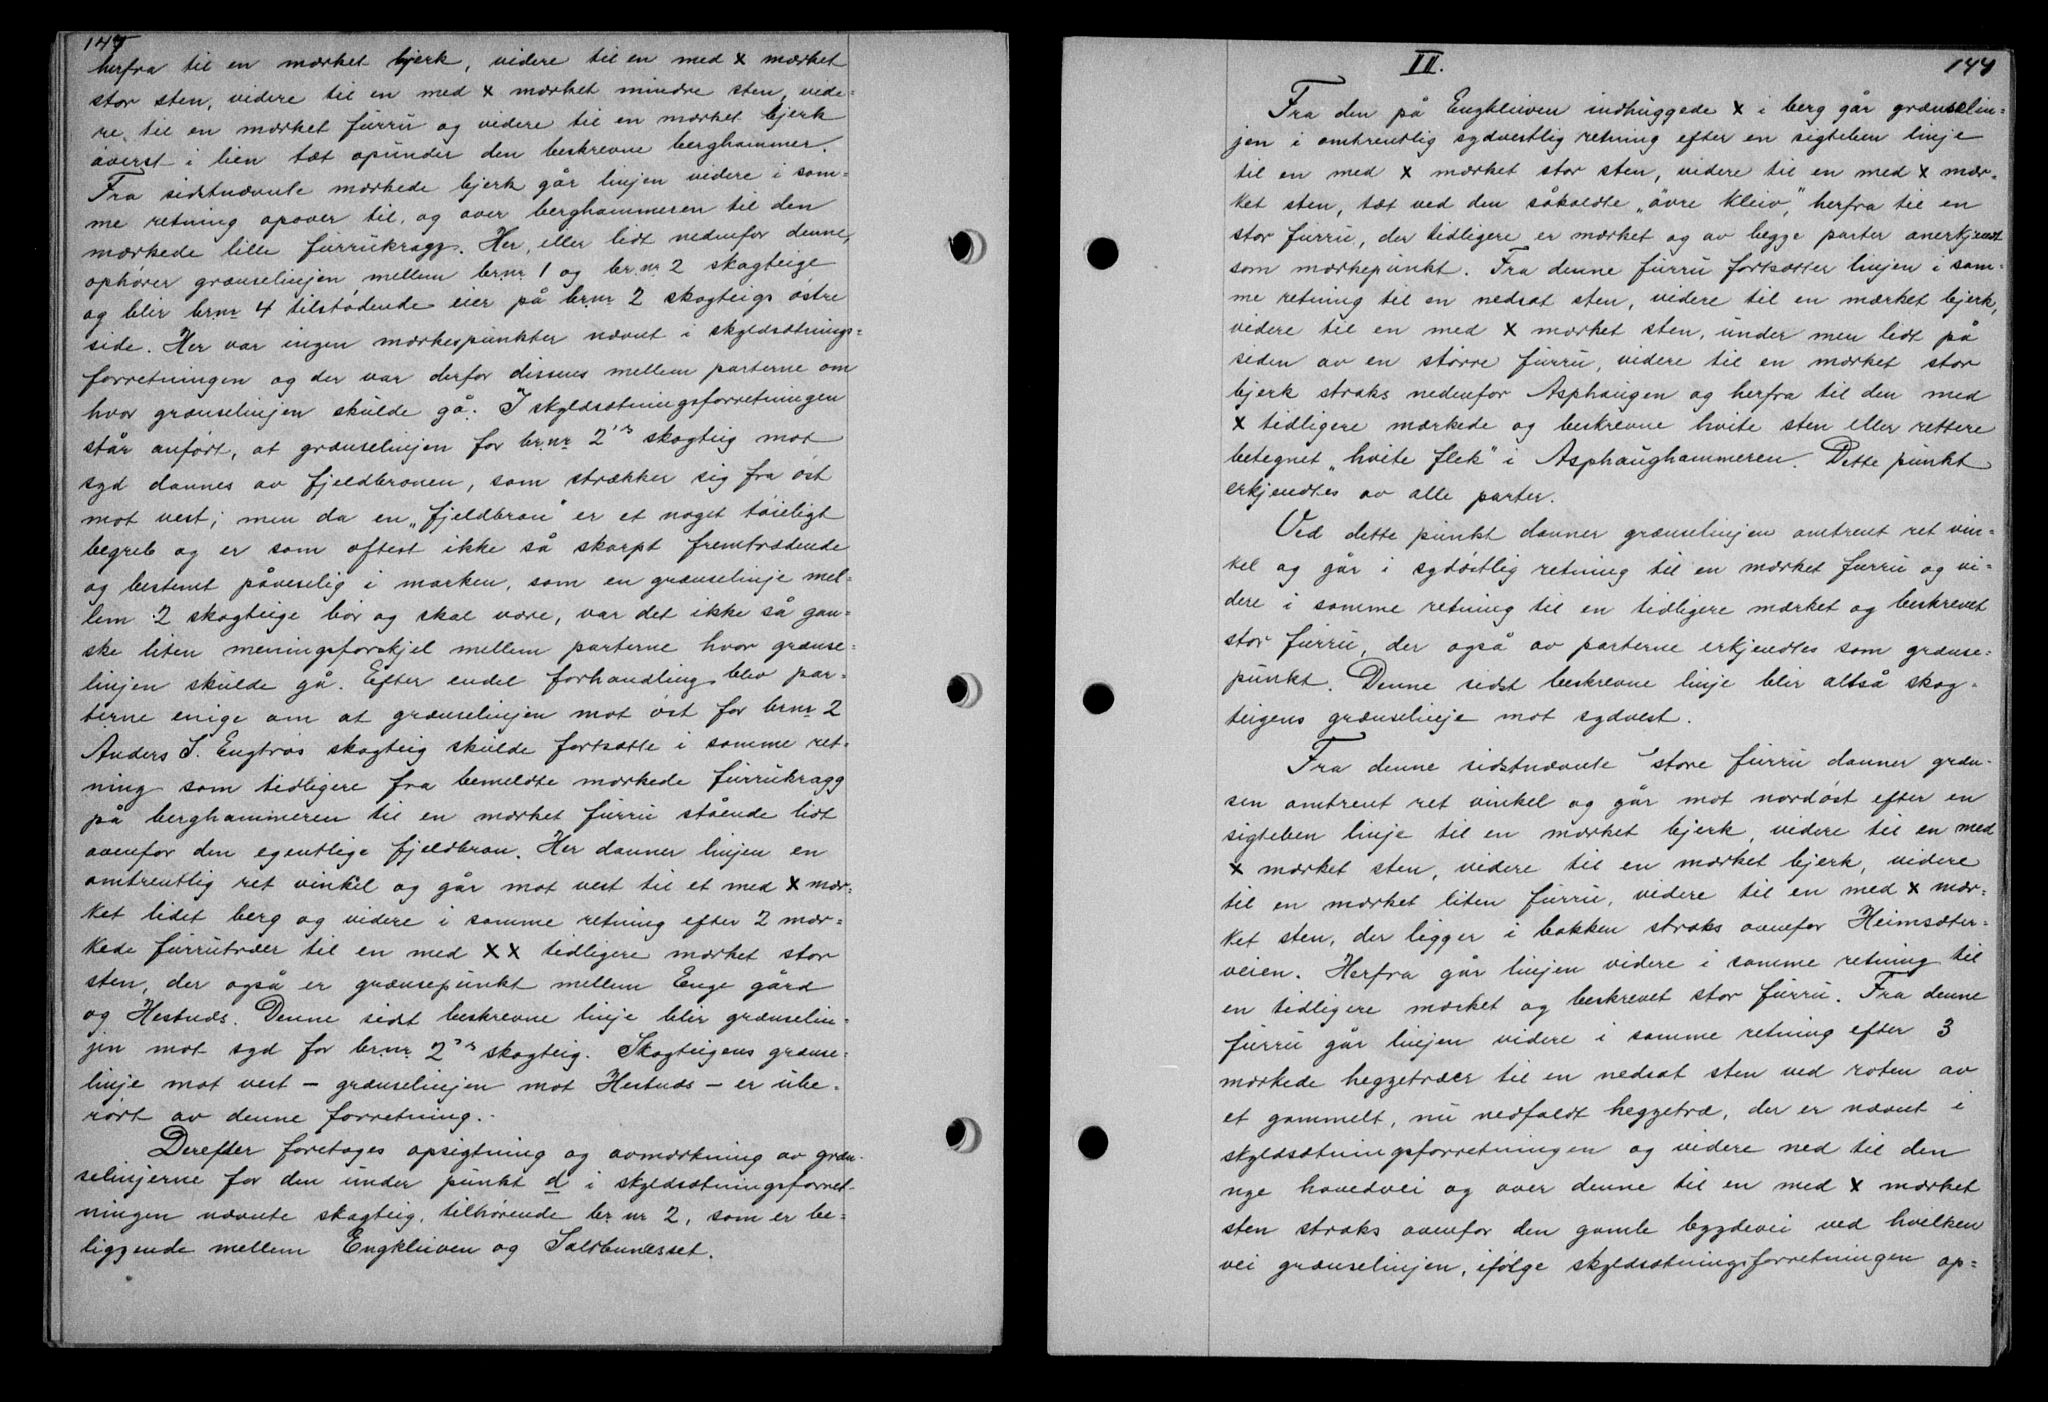 147
herfra til en mærket bjerk, videre til en med x mærket
stor sten, videre til en med x mærket mindre sten, vide-
re, til en mærket furru og videre til en mærket bjerk
øverst i lien tæt opunder den beskrevne berghammer.
Fra sidstnævnte mærkede bjerk går linjen videre i sam-
me retning opover til, og over berghammeren til den
mærkede lille furrukragg. Her, eller lidt nedenfor denne,
ophører grænselinjen mellem br.nr 1 og br.nr 2 skogteige
og blir br.nr 4 tilstødende eier på br.nr 2 skogteigs østre
side. Her var ingen mærkespunkter nævnt i skyldsætnings-
forretningen og der var derfor dissens mellem parterne om
hvor grænselinjen skulde gå. I skyldsætningsforretningen
står anført, at grænselinjen for br.nr 2's skogteig mot
syd dannes av fjeldbronen, som strækker sig fra øst
mot vest; men da en „fjeldbron" er et noget tøieligt
begreb og er som oftest ikke så skarpt fremtrædende
og bestemt påviselig i marken, som en grænselinje mel-
lem 2 skogteige bør og skal være, var det ikke så gan-
ske liten meningsforskjel mellem parterne hvor grænse-
linjen skulde gå. Efter endel forhandling blev par-
terne enige om at grænselinjen mot øst for br.nr 2
Anders S. Engtrøs skogteig skulde fortsætte i samme ret-
ning som tidligere fra bemeldte mærkede furrukragg
på berghammeren til en mærket furru stående lidt
ovenfor den egentlige fjeldbron. Her danner linjen en
omtrentlig ret vinkel og går mot vest til et med x mær-
ket lidet berg og videre i samme retning efter 2 mær-
kede furrutrær til en med xx tidligere mærket stor
sten, der også er grænsepunkt mellem Enge gård
og Hestnæs. Denne sidst beskrevne linje blir grænselin-
jen mot syd for br.nr. 2's skogteig. Skogteigens grænse-
linje mot vest – grænselinjen mot Hestnæs – er ube-
rørt av denne forretning.
Derefter foretoges opsigtning og avmærkning av græn-
selinjerne for den under punkt d i skyldsætningsforret-
ningen nævnte skogteig, tilhørende br.nr 2, som er be-
liggende mellem Engkleiven og Saltbuneset.
II.
144
Fra den på Engkleiven indhuggede x i berg går grænselin-
jen i omtrentlig sydvestlig retning efter en sigteben linje
til en med x mærket stor sten, videre til en med x mær-
ket sten, tæt ved den såkaldte „øvre kleiv", herfra til en
stor furru, der tidligere er mærket og av begge parter anerkjendt
som mærkepunkt. Fra denne furru fortsætter linjen i sam-
me retning til en nedsat sten, videre til en mærket bjerk,
videre til en med x mærket sten, under men lidt på
siden av en større furru, videre til en mærket stor
bjerk straks nedenfor Asphaugen og herfra til den med
x tidligere mærkede og beskrevne hvite sten eller rettere
betegnet „hvite flek" i Asphaughammeren. Dette punkt
erkjendtes av alle parter.
Ved dette punkt danner grænselinjen omtrent ret vin-
kel og går i sydøstlig retning til en mærket furru og vi-
dere i samme retning til en tidligere mærket og beskrevet
stor furru, der også av parterne erkjendtes som grænse-
punkt. Denne sidst beskrevne linje blir altså skog-
teigens grænselinje mot sydvest.
Fra denne sidstnævnte store furru danner græn-
sen omtrent ret vinkel og går mot nordøst efter en
sigteben linje til en mærket bjerk, videre til en med
x mærket sten, videre til en mærket bjerk, videre
til en mærket liten furru, videre til en med x mær-
ket sten, der ligger i bakken straks ovenfor Heimsæter-
veien. Herfra går linjen videre i samme retning til
en tidligere mærket og beskrevet stor furru. Fra denne
furru går linjen videre i samme retning efter 3
mærkede heggetrær til en nedsat sten ved roten av
et gammelt, nu nedfaldt heggetræ, der er nævnt i
skyldsætningsforretningen og videre ned til den
nye hovedvei og over denne til en med x mærket
sten straks ovenfor den gamle bygdevei ved hvilken
vei grænselinjen, ifølge skyldsætningsforretningen op-